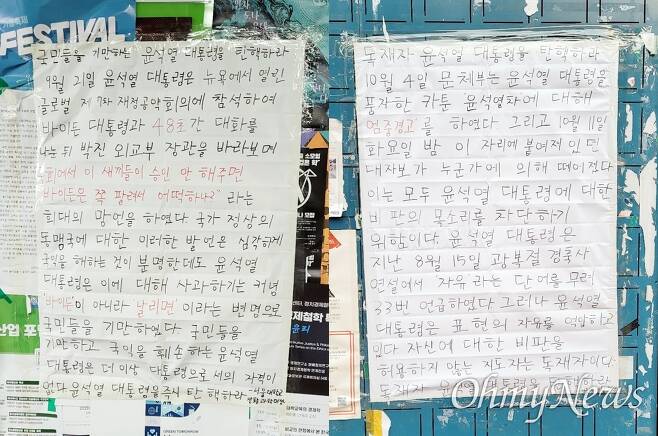 FESTIVAL
국민들을 기만하는 윤석열 대통령을 탄핵하라
9월 21일 윤석열 대통령은 뉴욕에서 열린
글로벌 제7차 재정공약회의에 참석하여
바이든 대통령과 48초간 대화를
나눈 뒤 박진 외교부 장관을 바라보며
"회에서 이 새끼들이 승인 안 해주면
바이든은 쪽 팔려서 어떡하나?" 라는
희대의 망언을 하였다 국가 정상의
동맹국에 대한 이러한 발언은 심각하게
국익을 해하는 것이 분명한데도 윤석열
대통령은 이에 대해 사과하기는 커녕
'바이든'이 아니라 '날리면' 이라는 변명으로
국민들을 기만하였다 국민들을
기만하고 국익을 훼손하는 윤석열
대통령을 더 이상 대통령으로서의 자격이
없다 윤석열 대통령을 즉시 탄핵하라
독재자 윤석열 대통령을 탄핵하라
10월 4일 문체부는 윤석열 대통령을
풍자한 카툰 '윤석열차'에 대해
'엄중경고'를 하였다 그리고 10월 11일
화요일 밤 이 자리에 붙여져 있던
대자보가 누군가에 의해 떼어졌다
이는 모두 윤석열 대통령에 대한
비판의 목소리를 차단하기
위함이다 윤석열 대통령은
지난 8월 15일 광복절 경축사
연설에서 자유 라는 단어를 무려
33번 언급하였다 그러나 윤석열
대통령은 표현의 자유를 억압하고
있다 자신에 대한 비판을
허용하지 않는 지도자는 독재자이다
독재자 윤석열
OhmyNews